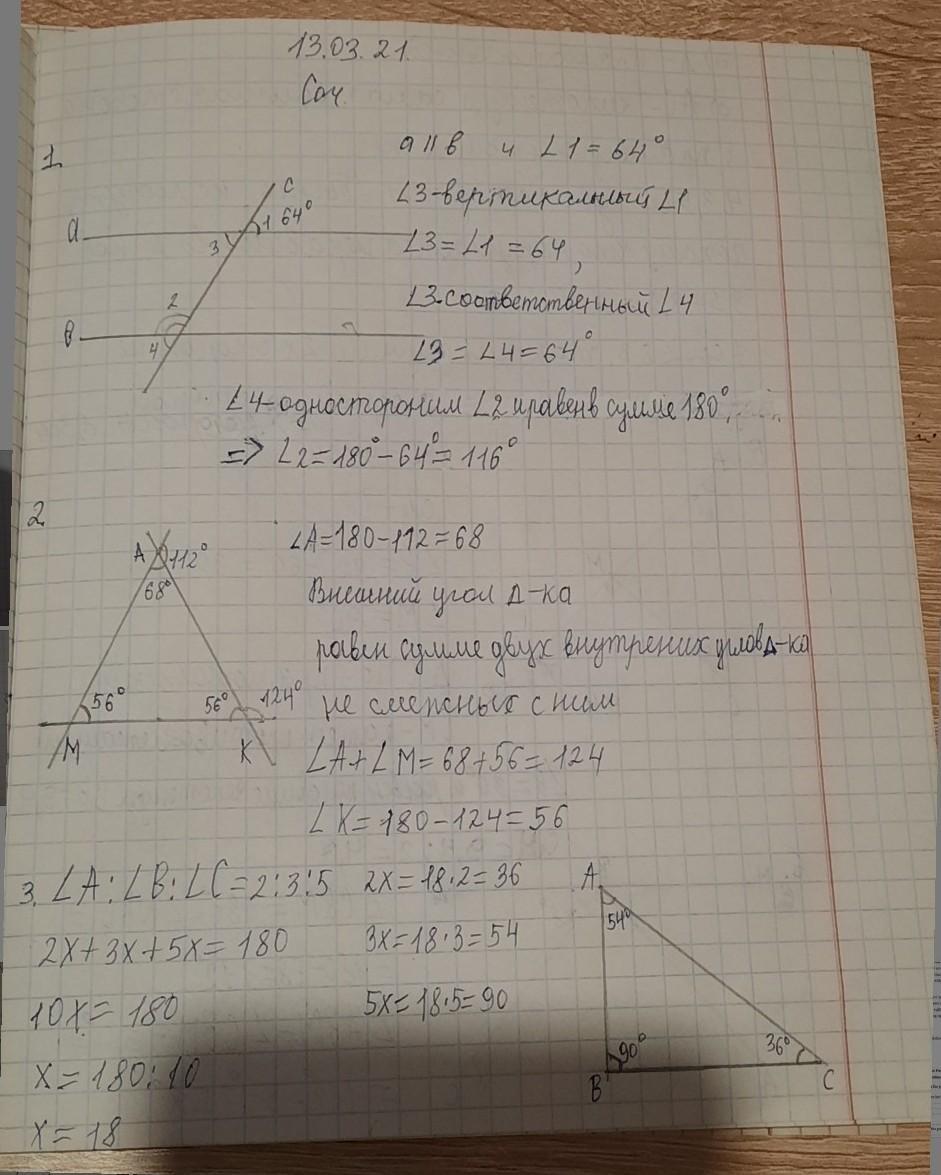 13.03.21.
Соч
1.
a || в и ∠1 = 64°
c
a
1 64°
3
∠3-вертикальный ∠1
∠3 = ∠1 = 64,
2
∠3-соответственный ∠4
в
4
∠3 = ∠4 = 64°
∠4-одностороним ∠2 и равен в сумме 180°.
=> ∠2 = 180° - 64° = 116°
2
A 112°
68°
56°
56° 124°
M K
∠A = 180 - 112 = 68
Внешний угол Δ-ка
равен сумме двух внутрених углов Δ-ка
не смежных с ним
∠A + ∠M = 68 + 56 = 124
∠K = 180 - 124 = 56
3. ∠A : ∠B : ∠C = 2:3:5
2x + 3x + 5x = 180
10x = 180
x = 180:10
x = 18
2x = 18·2 = 36
3x = 18·3 = 54
5x = 18·5 = 90
A
54°
90° 36°
B C